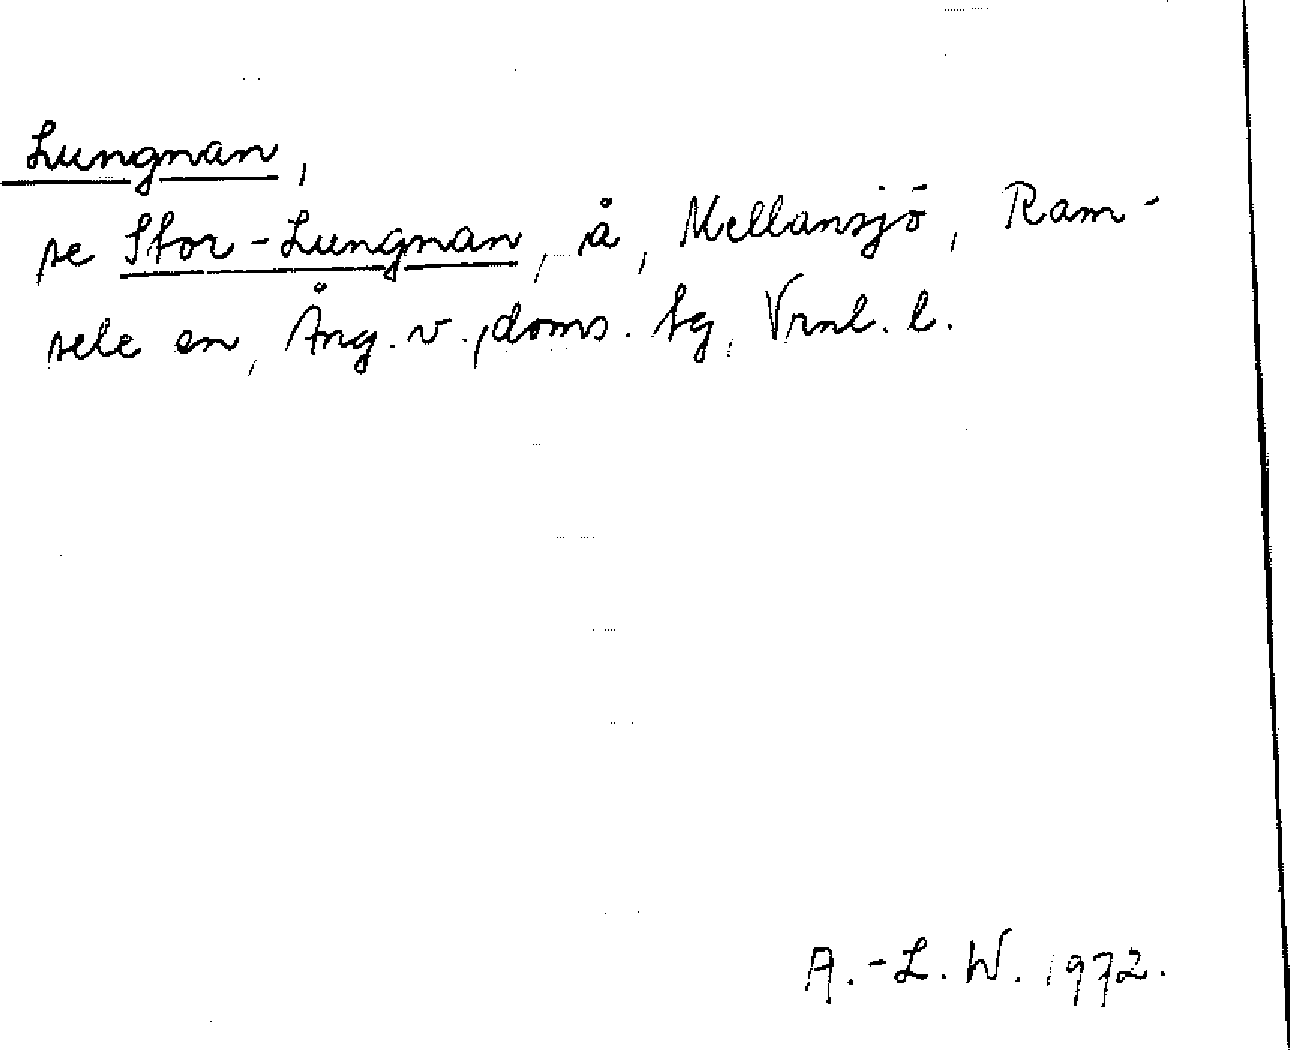 Lungnan,
se Stor-Lungnan, å, Mellansjö, Ram-
sele sn, Ång. v., doms. tg, Vrnl. l.
A.-L. W. 1972.